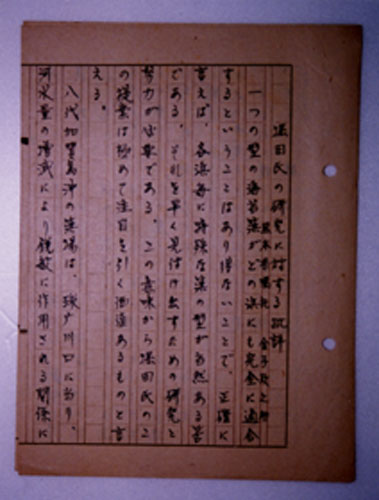 濱田氏の研究に対する批評
熊本県嘱託 金子政之助
一つの型の海苔篊がどの浜にも完全に適合
するということはあり得ないことで、正確に
言えば、各浜毎に特殊な篊の型が当然ある筈
である。それを早く見付け出すための研究と
努力が必要である。この意味から濱田氏のこ
の提案は極めて注目を引く価値あるものと言
える。
八代加賀島沖の漁場は、球广川口に当り、
河水量の増減により鋭敏に作用される関係に